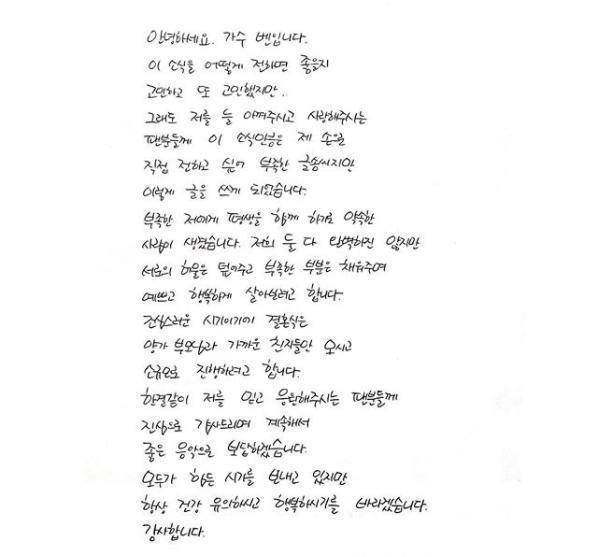 안녕하세요. 가수 벤입니다.
이 소식을 어떻게 전하면 좋을지
고민하고 또 고민했지만.
그래도 저를 늘 아껴주시고 사랑해주시는
팬분들께 이 소식만큼은 제 손으로
직접 전하고 싶어 부족한 글솜씨지만
이렇게 글을 쓰게 되었습니다.
부족한 저에게 평생을 함께 하기로 약속한
사람이 생겼습니다. 저희 둘 다 완벽하진 않지만
서로의 허물은 덮어주고 부족한 부분은 채워주며
예쁘고 행복하게 살아보려고 합니다.
조심스러운 시기이기에 결혼식은
양가 부모님과 가까운 친지들만 모시고
소규모로 진행하려고 합니다.
한결같이 저를 믿고 응원해주시는 팬분들께
진심으로 감사드리며 계속해서
좋은 음악으로 보답하겠습니다.
모두가 힘든 시기를 보내고 있지만
항상 건강 유의하시고 행복하시기를 바라겠습니다.
감사합니다.